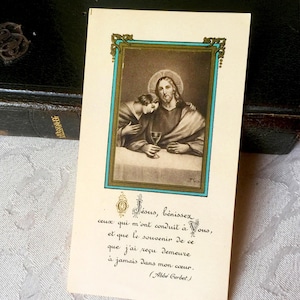 Ô Jésus, bénissez
ceux qui m'ont conduit à Vous,
et que le souvenir de ce
que j'ai reçu demeure
à jamais dans mon cœur.
(Abbé Gerbet.)